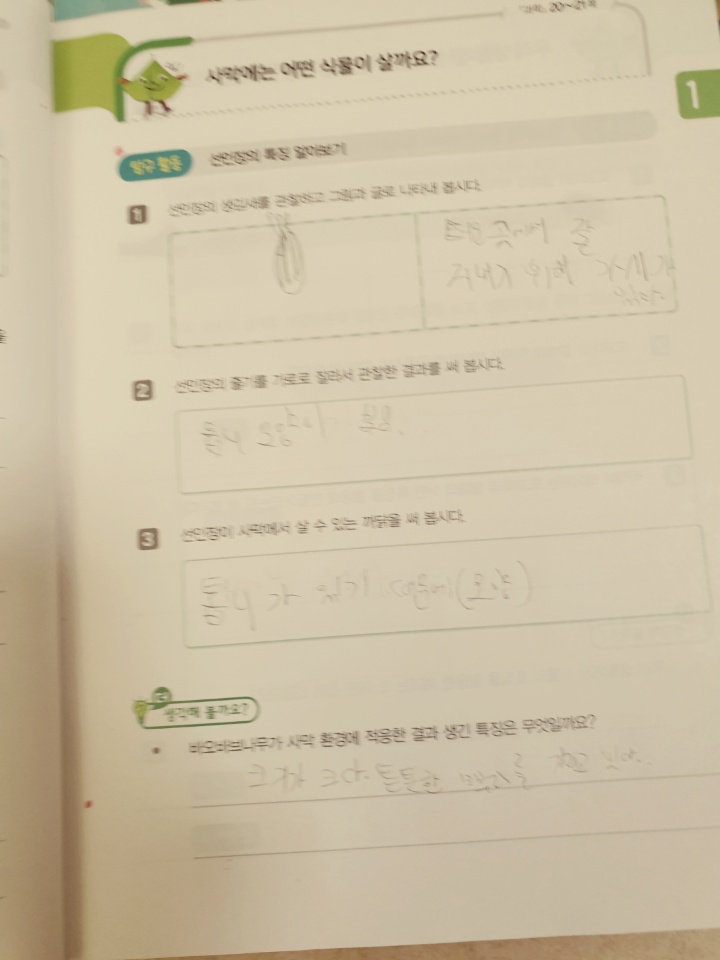 과학 20~21쪽
사막에는 어떤 식물이 살까요?
1
탐구 활동 선인장의 특징 알아보기
1 선인장의 생김새를 관찰하고 그림과 글로 나타내 봅시다.
잘
위해 가시가
있다.
2 선인장의 줄기를 가로로 잘라서 관찰한 결과를 써 봅시다.
톱니 모양이
3 선인장이 사막에서 살 수 있는 까닭을 써 봅시다.
톱니가 있기 때문에(모양)
생각해 볼까요?
• 바오바브나무가 사막 환경에 적응한 결과 생긴 특징은 무엇일까요?
크기가 크다. 튼튼한